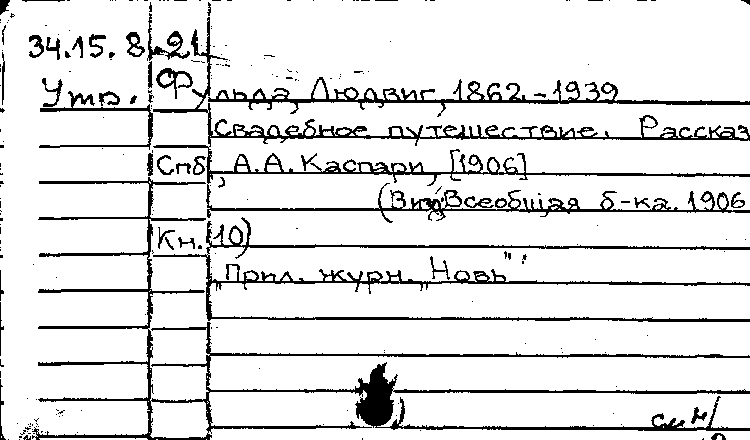 34.15.8.21
Утр. Фульда, Людвиг, 1862-1939
Свадебное путешествие. Рассказ
Спб, А.А. Каспари, [1906]
Всеобщая б-ка. 1906
Кн. 10)
"Прил. журн. „Новь"